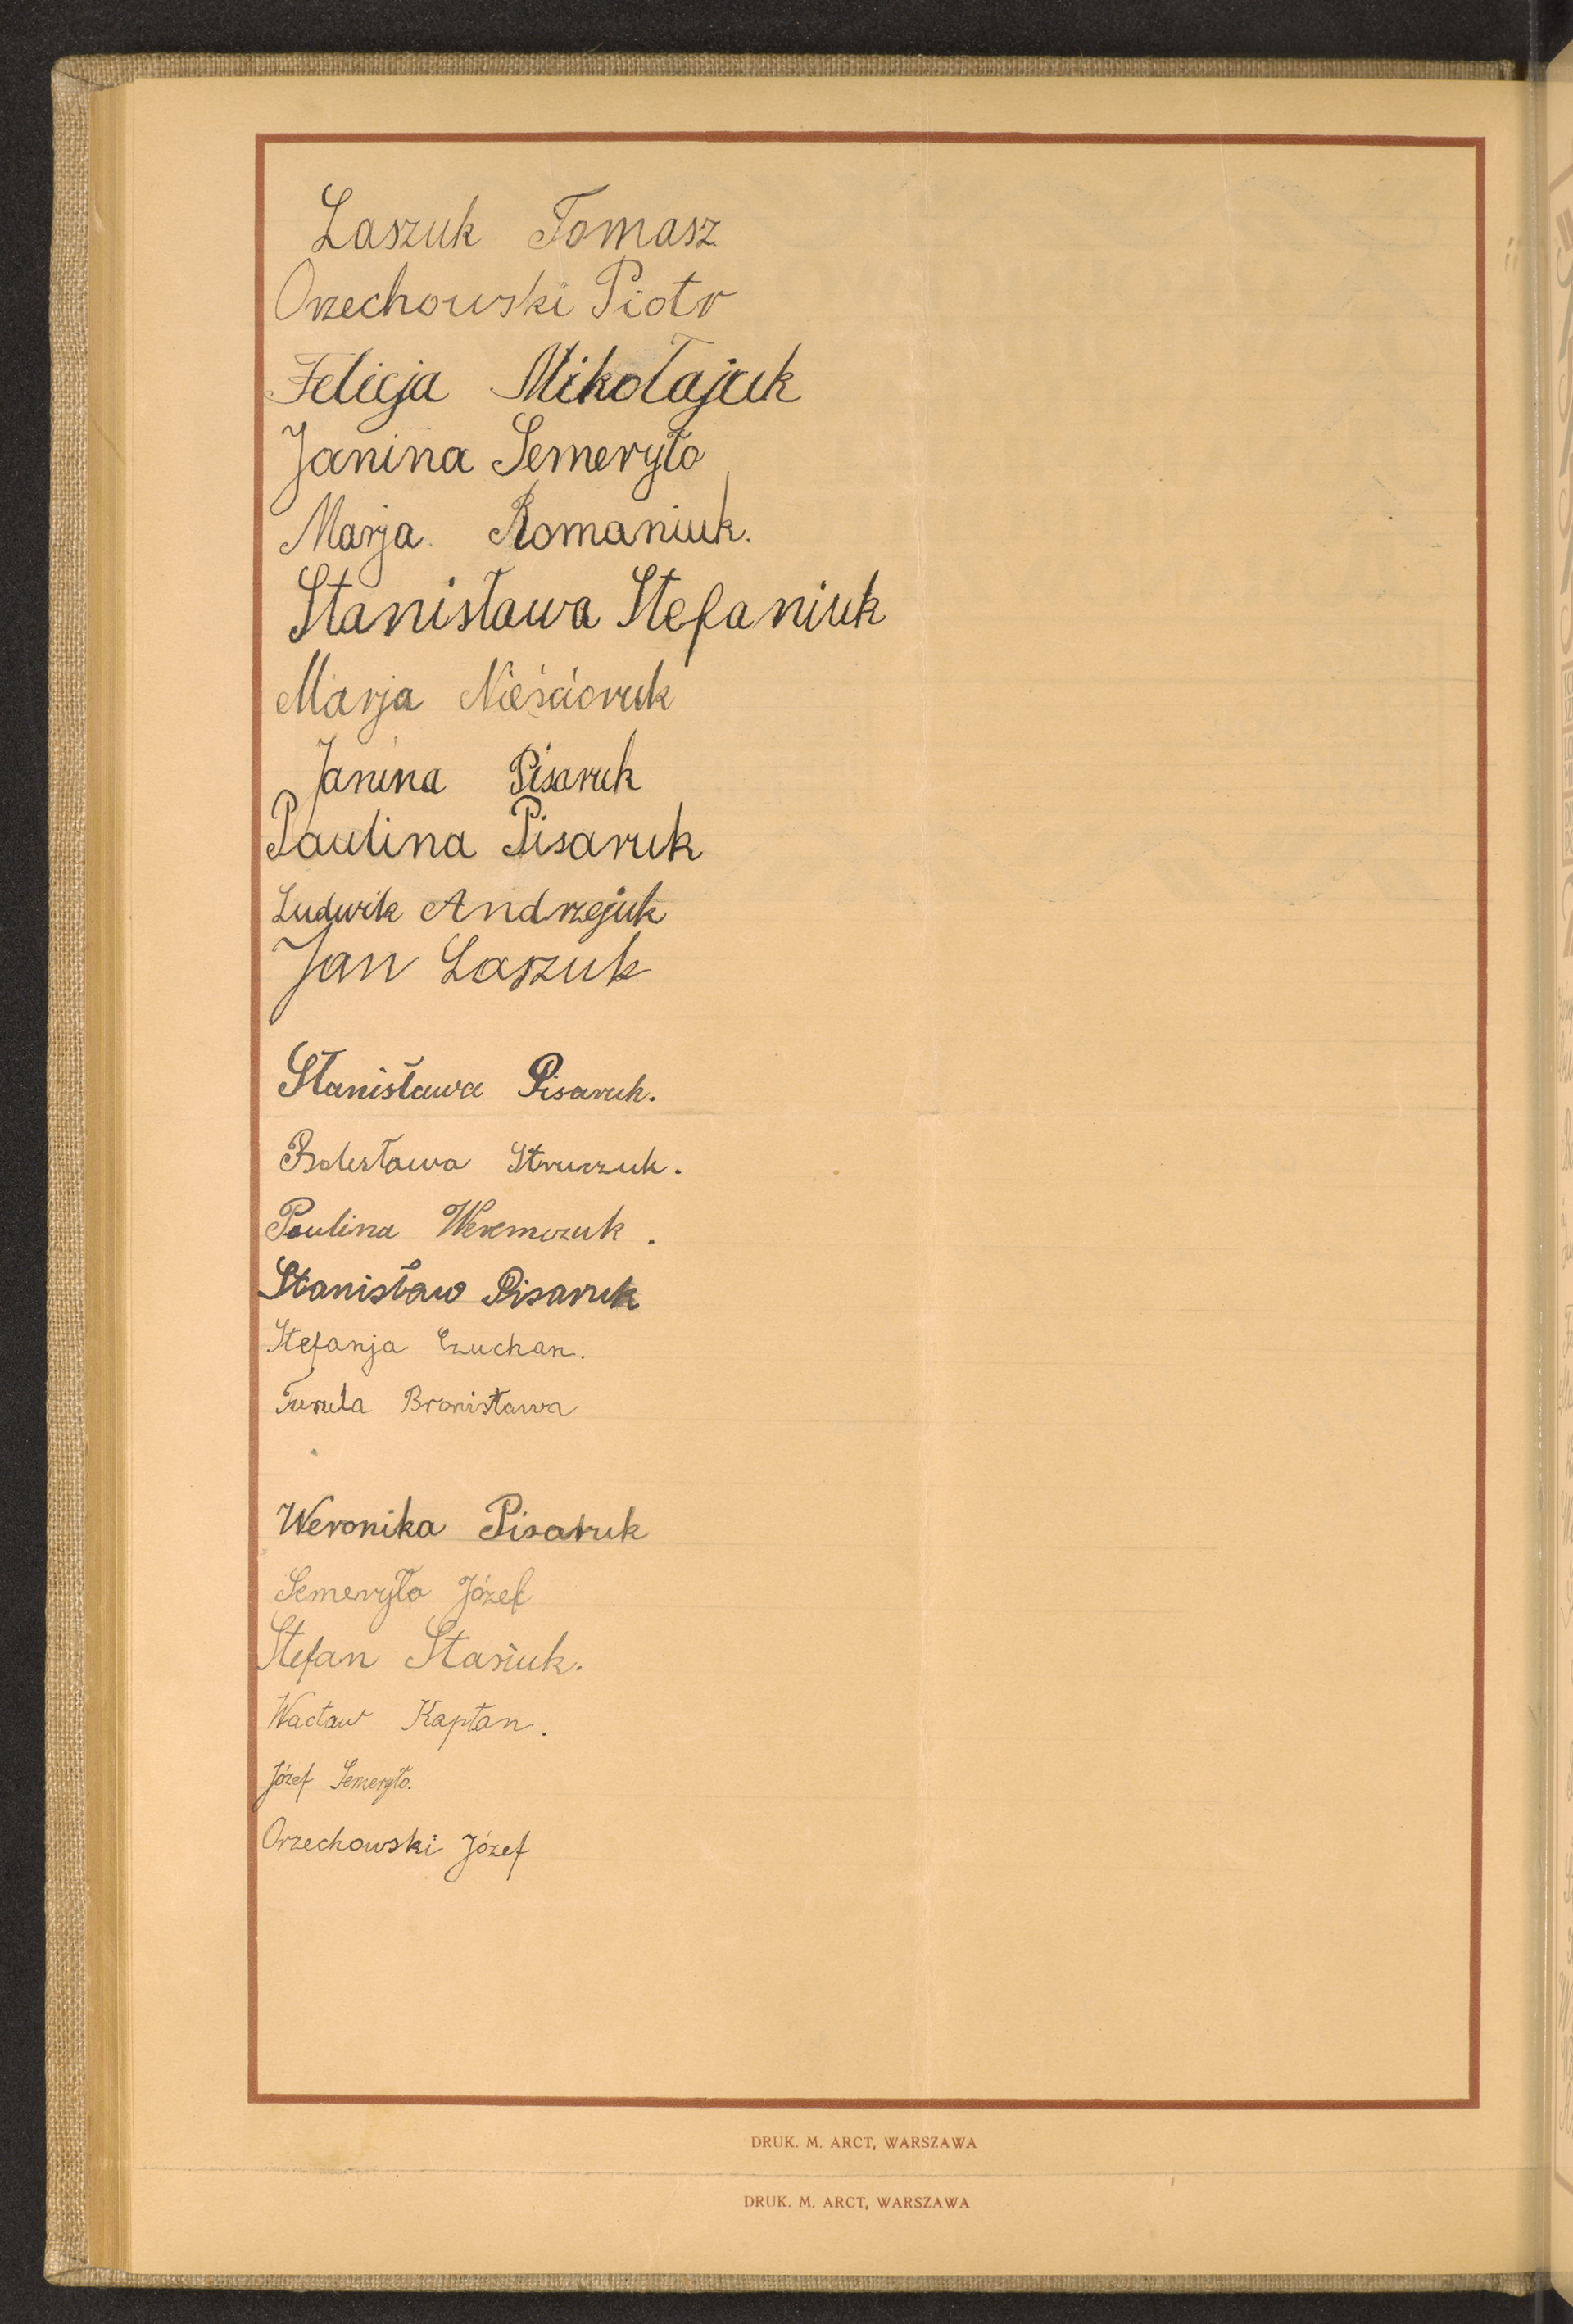 Laszuk Tomasz
Orzechowski Piotr
Felicja Mikołajuk
Janina Semeryło
Marja Romaniuk.
Stanisława Stefaniuk
Marja Nieścioruk
Janina Pisaruk
Paulina Pisaruk
Ludwik Andrzejuk
Jan Laszuk
Stanisława Pisaruk.
Bolesława Struczuk.
Paulina Weremczuk.
Stanisław Pisaruk
Stefanja Czuchan.
Turuła Bronisława
Weronika Pisaruk
Semeryło Józef
Stefan Stasiuk.
Wacław Kapłan.
Józef Semeryło.
Orzechowski Józef
DRUK. M. ARCT, WARSZAWA
DRUK. M. ARCT, WARSZAWA